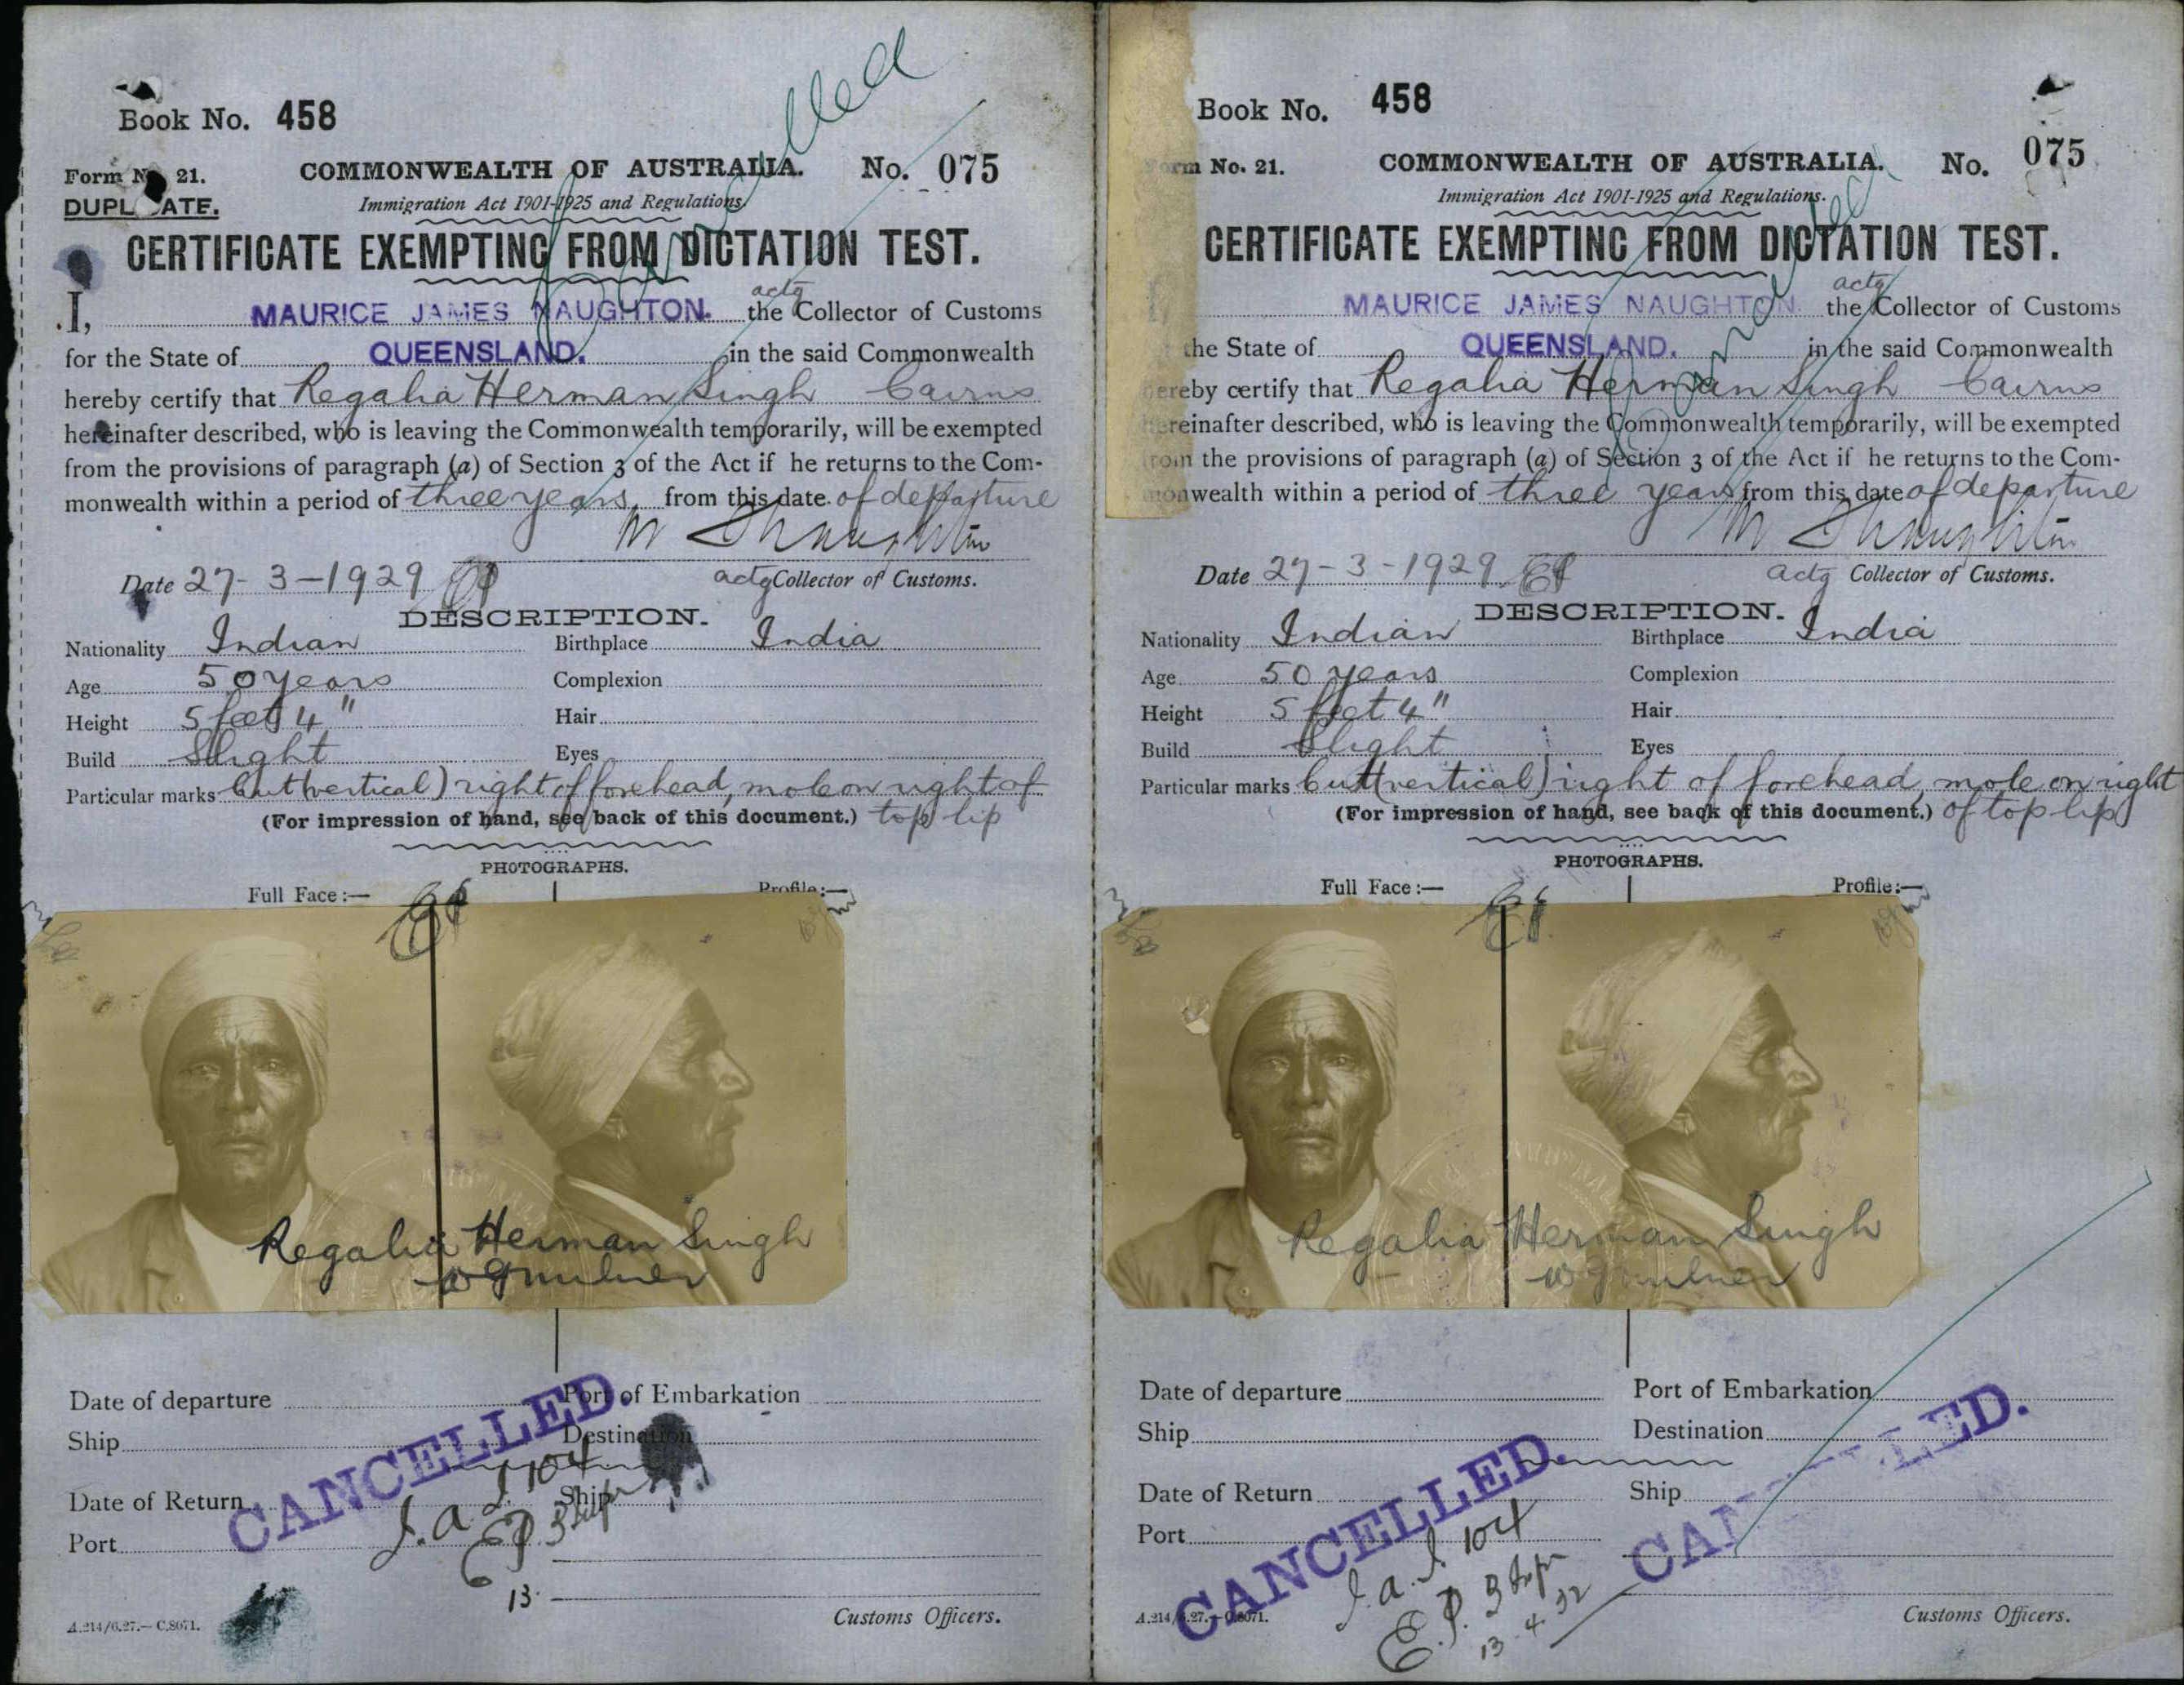 Book No. 458
Form No. 21.
DUPLICATE.
COMMONWEALTH OF AUSTRALIA. No. 075
Immigration Act 1901-1925 and Regulations.
CERTIFICATE EXEMPTING FROM DICTATION TEST.
Cancelled
I, MAURICE JAMES NAUGHTON. the actg Collector of Customs
for the State of QUEENSLAND. in the said Commonwealth
hereby certify that Regalia Herman Singh Cairns
hereinafter described, who is leaving the Commonwealth temporarily, will be exempted
from the provisions of paragraph (a) of Section 3 of the Act if he returns to the Com-
monwealth within a period of three years from this date of departure
Date 27-3-1929
actg Collector of Customs.
DESCRIPTION.
Nationality Indian Birthplace India
Age 50 years Complexion
Height 5 feet 4" Hair
Build Slight Eyes
Particular marks Cut (vertical) right of forehead, mole on right of
(For impression of hand, see back of this document.) top lip
PHOTOGRAPHS.
Full Face :— Profile :—
Regalia Herman Singh
Date of departure Port of Embarkation
Ship Destination
Date of Return Ship
Port
CANCELLED.
104
13
Customs Officers.
A.214/6.27.— C.8071.
Book No. 458
Form No. 21.
COMMONWEALTH OF AUSTRALIA. No. 075
Immigration Act 1901-1925 and Regulations.
CERTIFICATE EXEMPTING FROM DICTATION TEST.
Cancelled
MAURICE JAMES NAUGHTON. the actg Collector of Customs
the State of QUEENSLAND. in the said Commonwealth
hereby certify that Regalia Herman Singh Cairns
hereinafter described, who is leaving the Commonwealth temporarily, will be exempted
from the provisions of paragraph (a) of Section 3 of the Act if he returns to the Com-
monwealth within a period of three years from this date of departure
Date 27-3-1929
actg Collector of Customs.
DESCRIPTION.
Nationality Indian Birthplace India
Age 50 years Complexion
Height 5 feet 4" Hair
Build Slight Eyes
Particular marks Cut (vertical) right of forehead, mole on right
(For impression of hand, see back of this document.) of top lip
PHOTOGRAPHS.
Full Face :— Profile :—
Regalia Herman Singh
Date of departure Port of Embarkation
Ship Destination
Date of Return Ship
Port
CANCELLED.
CANCELLED.
104
13.4.32
Customs Officers.
A.214/6.27.— C.8071.